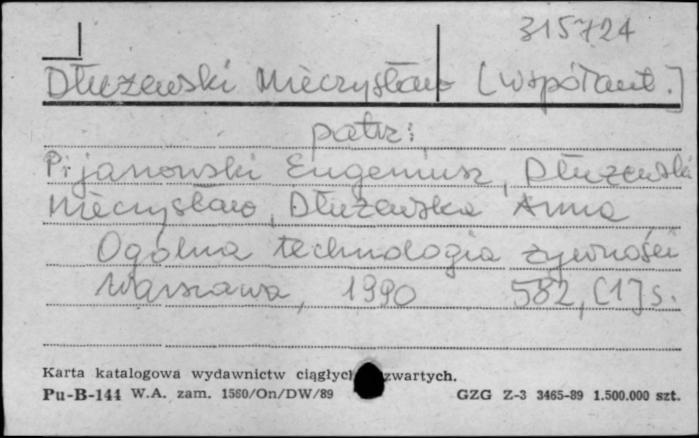 315724
Dłużewski Mieczysław [współaut.]
patrz:
Pijanowski Eugeniusz, Dłużewski
Mieczysław, Dłużewska Anna
Ogólna technologia żywności
Warszawa, 1990 582, [1] s.
Karta katalogowa wydawnictw ciągłych zwartych.
Pu-B-144 W.A. zam. 1560/On/DW/89 GZG Z-3 3465-89 1.500.000 szt.